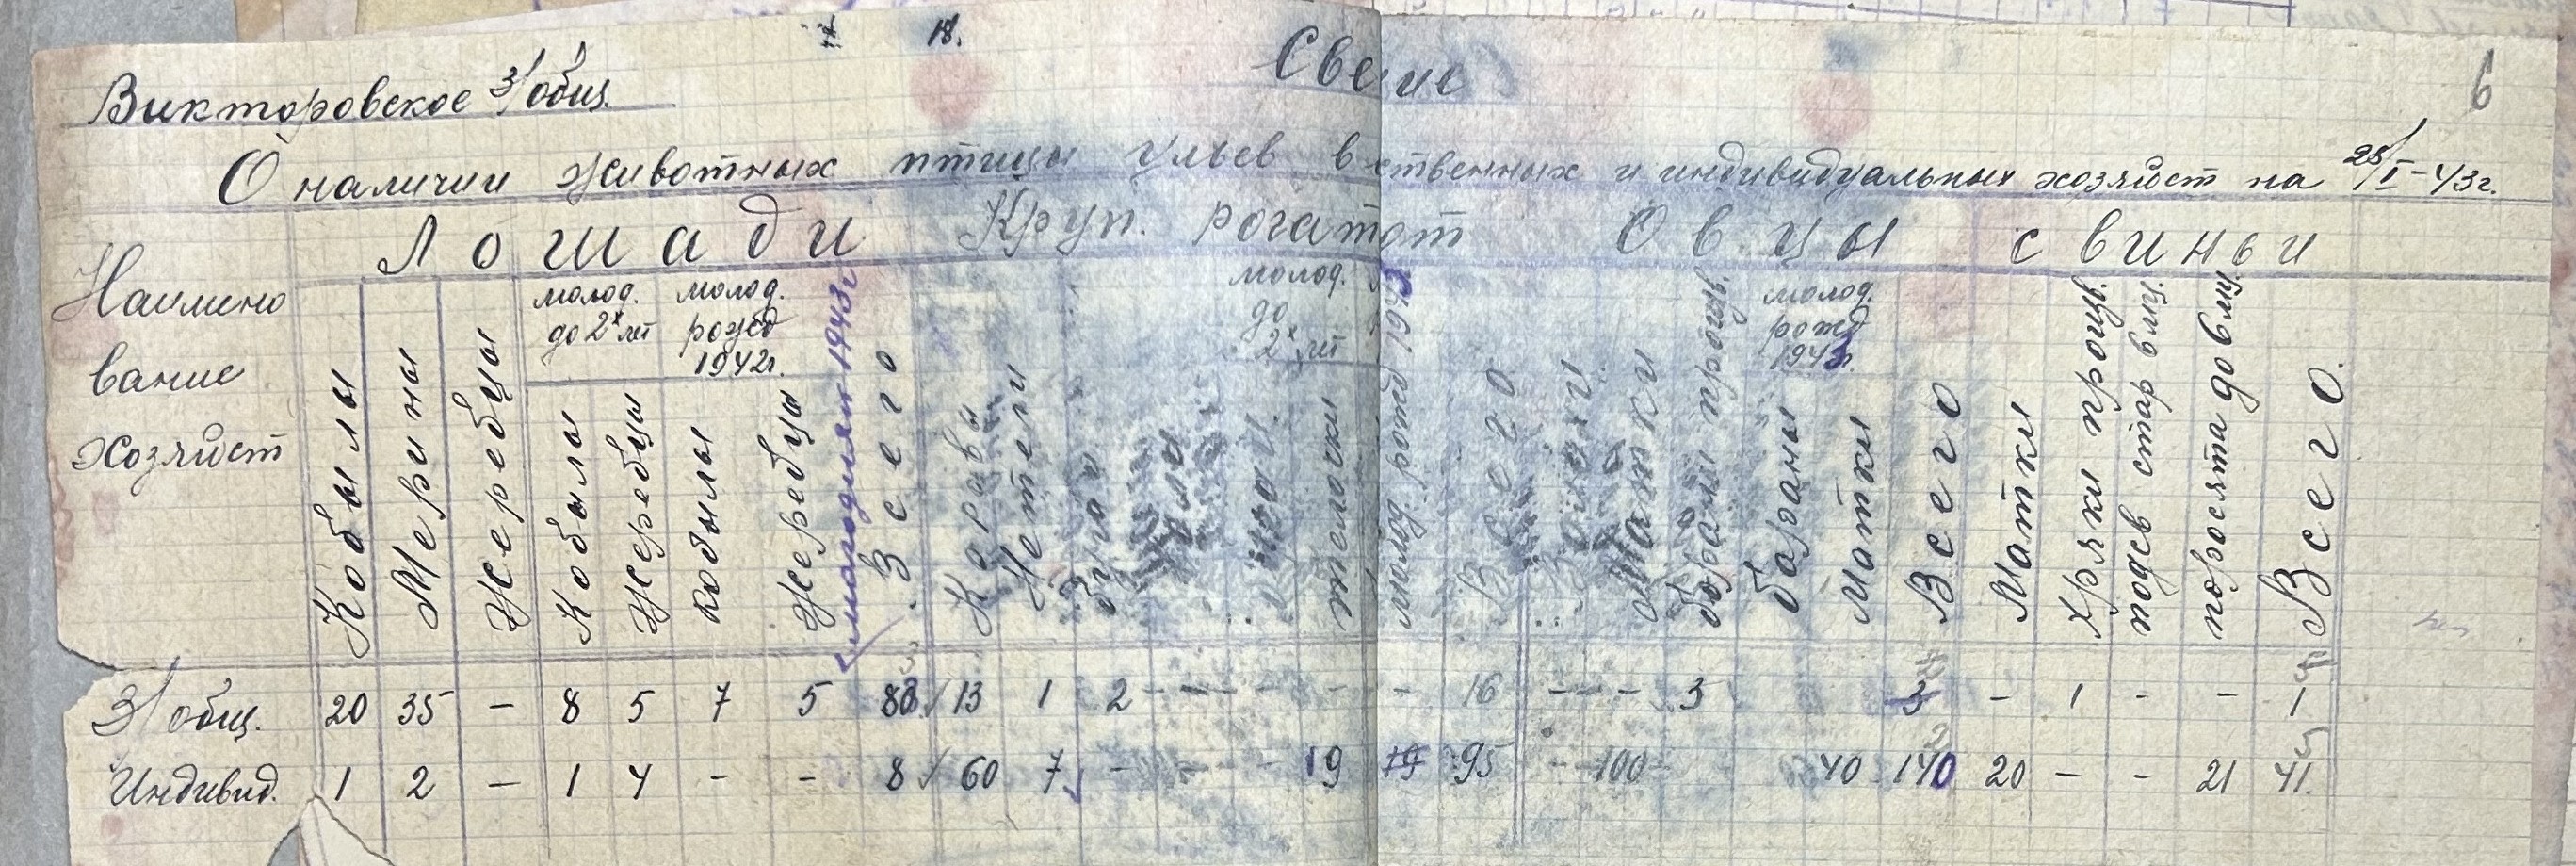 18.
Викторовское З/общ.
6
О наличии животных птицы ульев в ственных и индивидуальных хозяйст на 25/I-43г.
Лошади Круп. рогат Овцы свиньи
Наимено
вание
хозяйст
Кобылы
Мерины
Жеребцы
молод. до 2х лет
Кобылы
Жеребцы
молод. рожд 1942г.
кобылы
Жеребцы
молодняк 1943г
Всего
Коровы
Нетели
молод. до 2х лет
телочки
молод. рожд 1943
Всего
Матки
бораны произв.
молод. рожд 1943г.
бораны
Матки
Всего
Матки
Хряки произв.
подсв стар 6 мц.
поросята до 6 мц
Всего.
З/общ. 20 35 – 8 5 7 5 80 13 1 2 - - - - - 16 - - 3 3 - 1 - - 1
Индивид. 1 2 – 1 4 - - 8 60 7 - - - 19 19 95 - 100 40 140 20 - - 21 41.